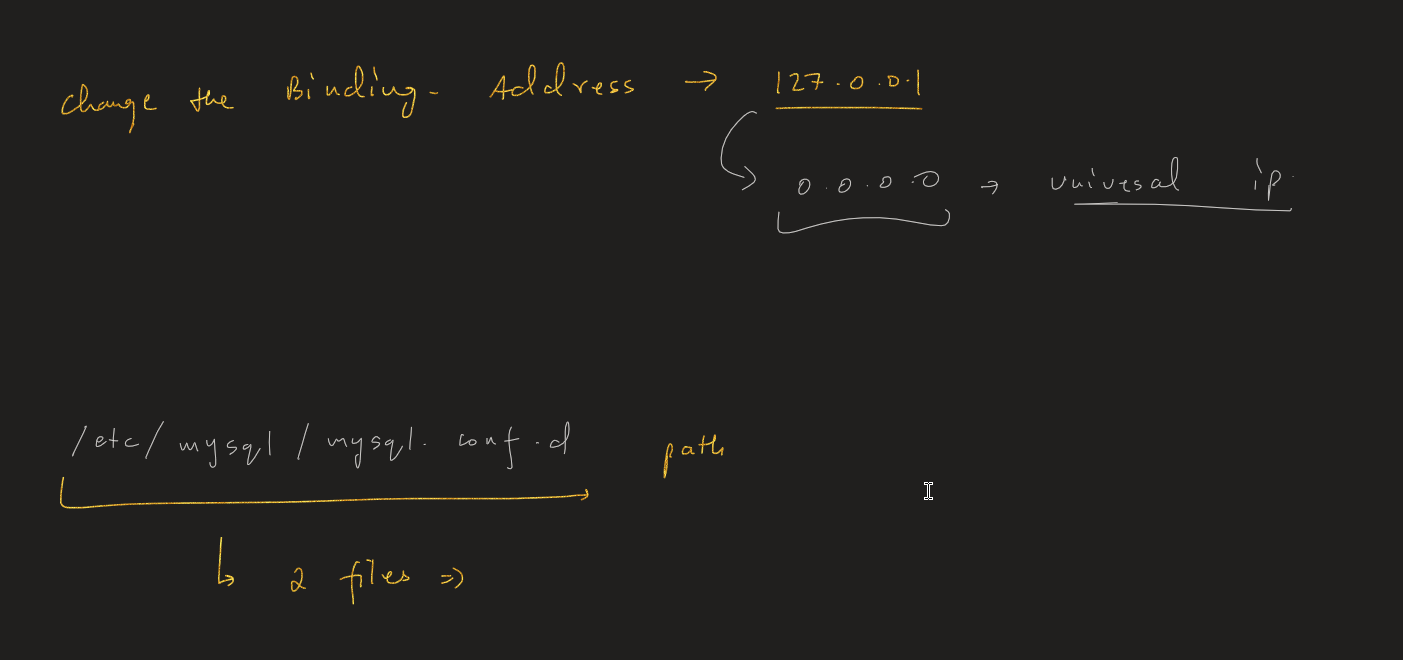 change the Binding - Address → 127.0.0.1
0.0.0.0 → univesal ip.
/etc/mysql/mysql.conf.d path
↳ 2 files ⇒